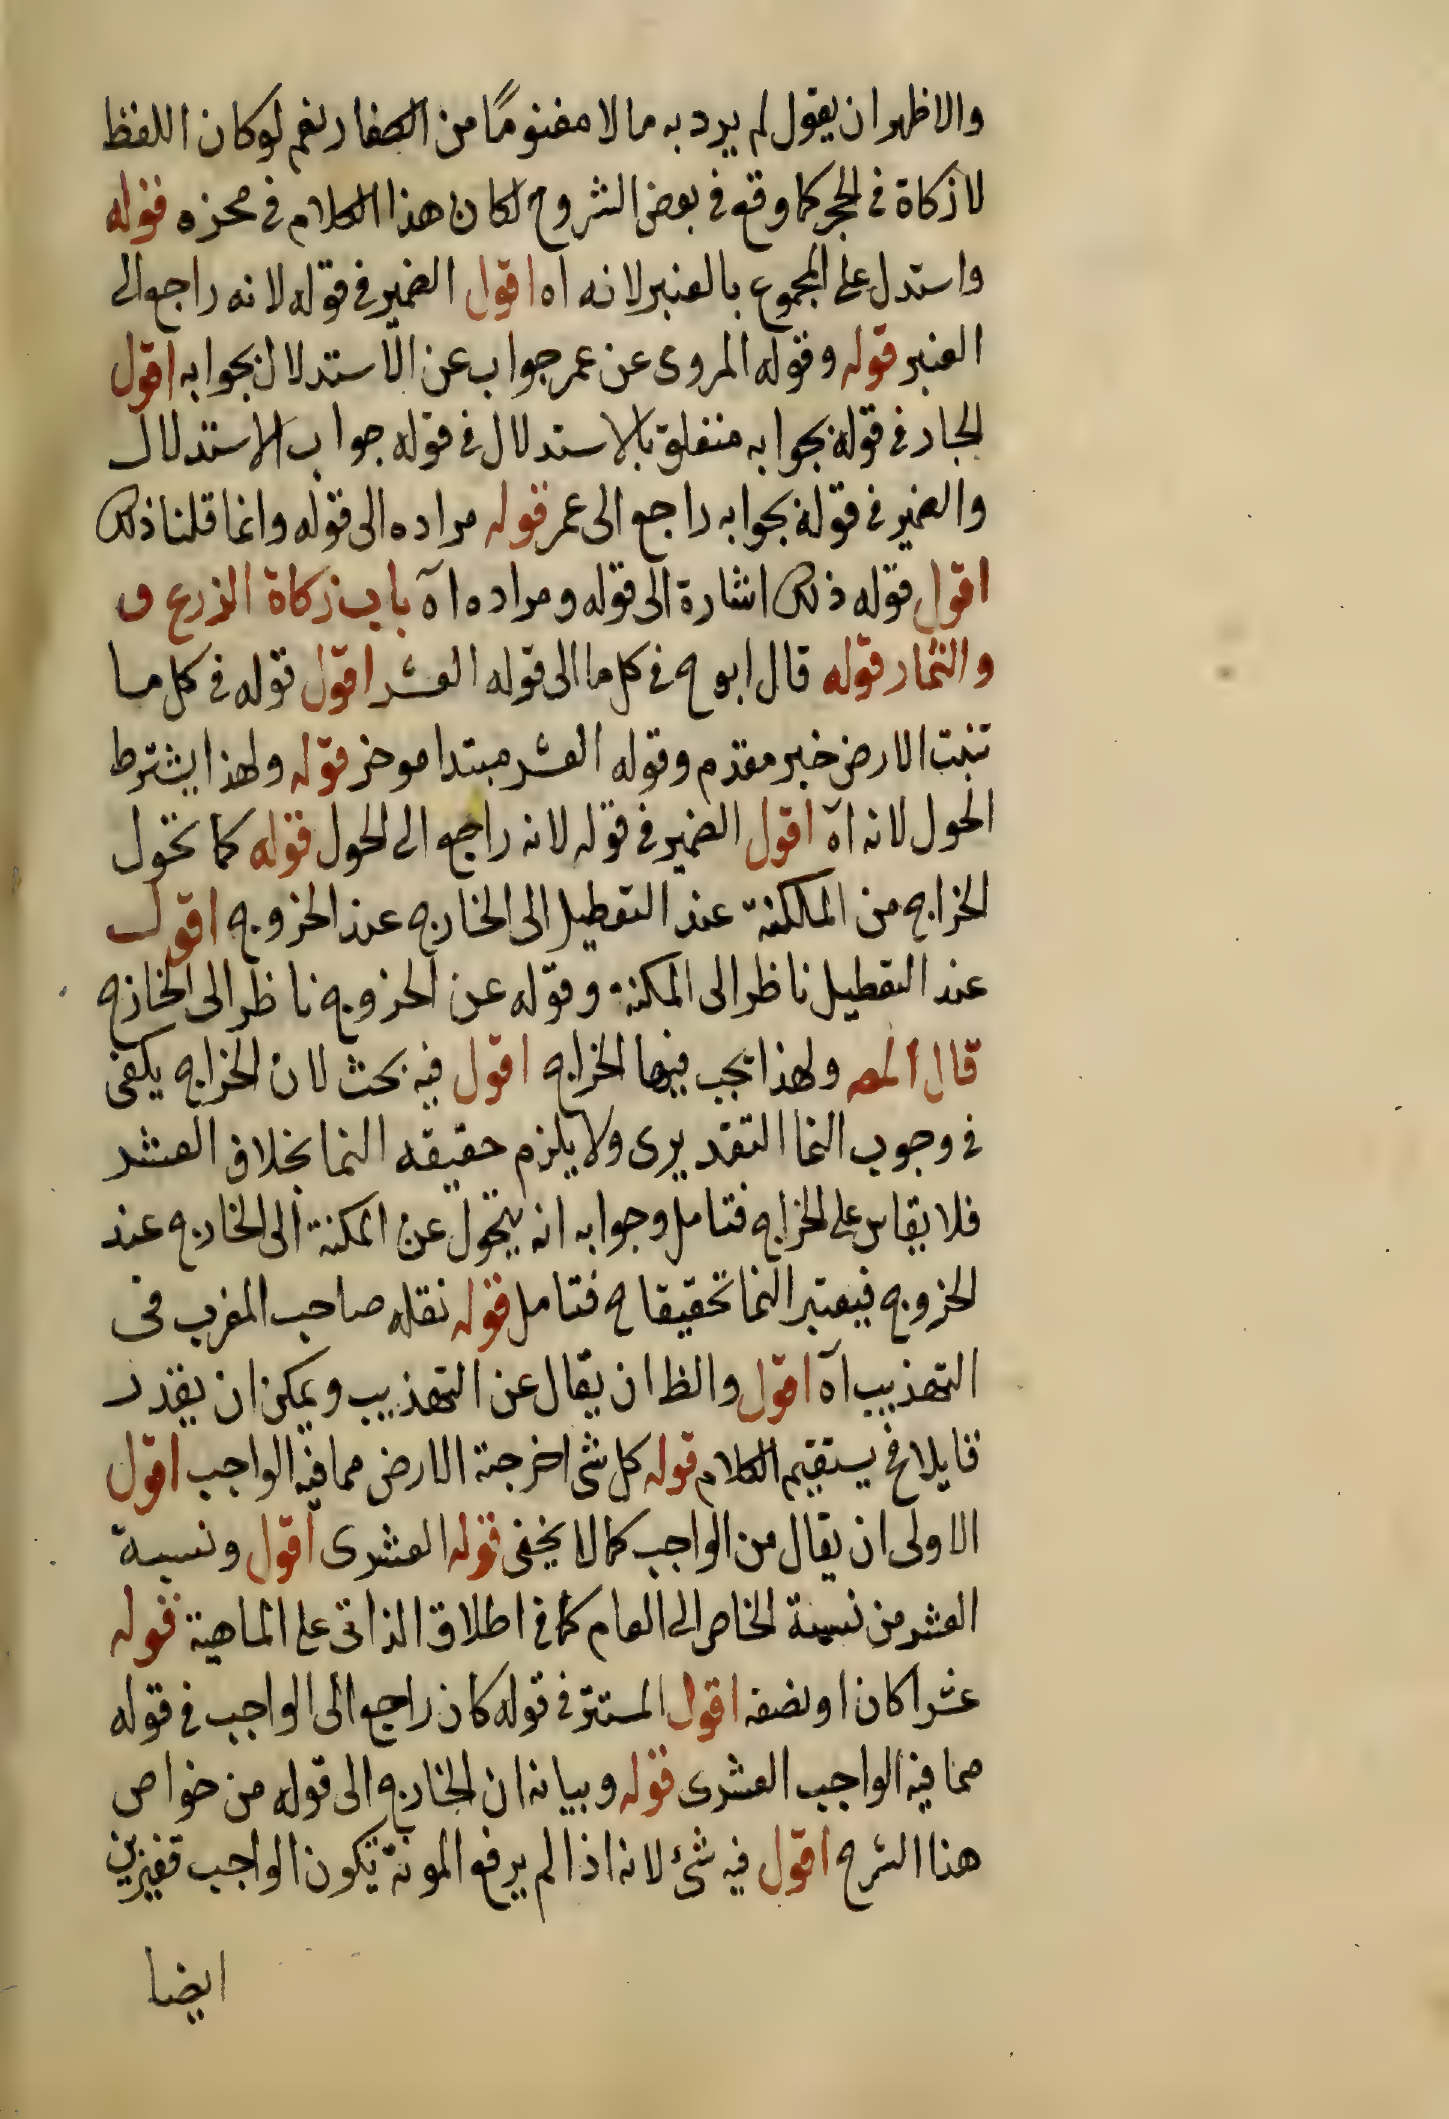 والاظهر ان يقول لم يرد به مالا مغنومًا من الكفار نعم لو كان اللفظ
لا زكاة في الحجر كما وقع في بعض الشروح لكان هذا الكلام في محزه قوله
واستدل على المجموع بالعنبر لانه اه اقول الضمير في قوله لانه راجع الى
العنبر قوله وقوله المروى عن عمر جواب عن الاستدلال بجوابه اقول
الجار في قوله بجوابه متعلق بالاستدلال في قوله جواب الاستدلال
والضمير في قوله بجوابه راجع الى عمر قوله مراده الى قوله وانما قلنا ذلك
اقول قوله ذلك اشارة الى قوله ومراده اه باب زكاة الزرع و
والثمار قوله قال ابو ح في كل ما الى قوله العشر اقول قوله في كل ما
تنبت الارض خبر مقدم وقوله العشر مبتدا موخر قوله ولهذا يشترط
الحول لانه اه اقول الضمير في قوله لانه راجع الى الحول قوله كما تحول
الخراج من المالكنة عند التعطيل الى الخارج عند الخروج اقول
عند التعطيل ناظر الى المكنة وقوله عن الخروج ناظر الى الخارج
قال المص ولهذا يجب فيها الخراج اقول فيه بحث لان الخراج يكفى
في وجوب النما التقديرى ولا يلزم حقيقه النما بخلاف العشر
فلا يقاس على الخراج فتامل وجوابه انه يتحول عن المكنة الى الخارج عند
الخروج فيعتبر النما تحقيقا ح فتامل قوله نقله صاحب المغرب في
التهذيب اه اقول والظ ان يقال عن التهذيب ويمكن ان يقدر
قايلا فح يستقيم الكلام قوله كل شى اخرجته الارض مما فيه الواجب اقول
الاولى ان يقال من الواجب كما لا يخفى قوله العشرى اقول ونسبة
العشر من نسبة الخاص الى العام كما في اطلاق الذاتى على الماهية قوله
عشرا كان او نصفه اقول المستتر في قوله كان راجع الى الواجب في قوله
مما فيه الواجب العشرى قوله وبيانه ان الخارج الى قوله من خواص
هذا الشرح اقول فيه شئ لانه اذا لم يرفع المونة يكون الواجب قفيزين
ايضا